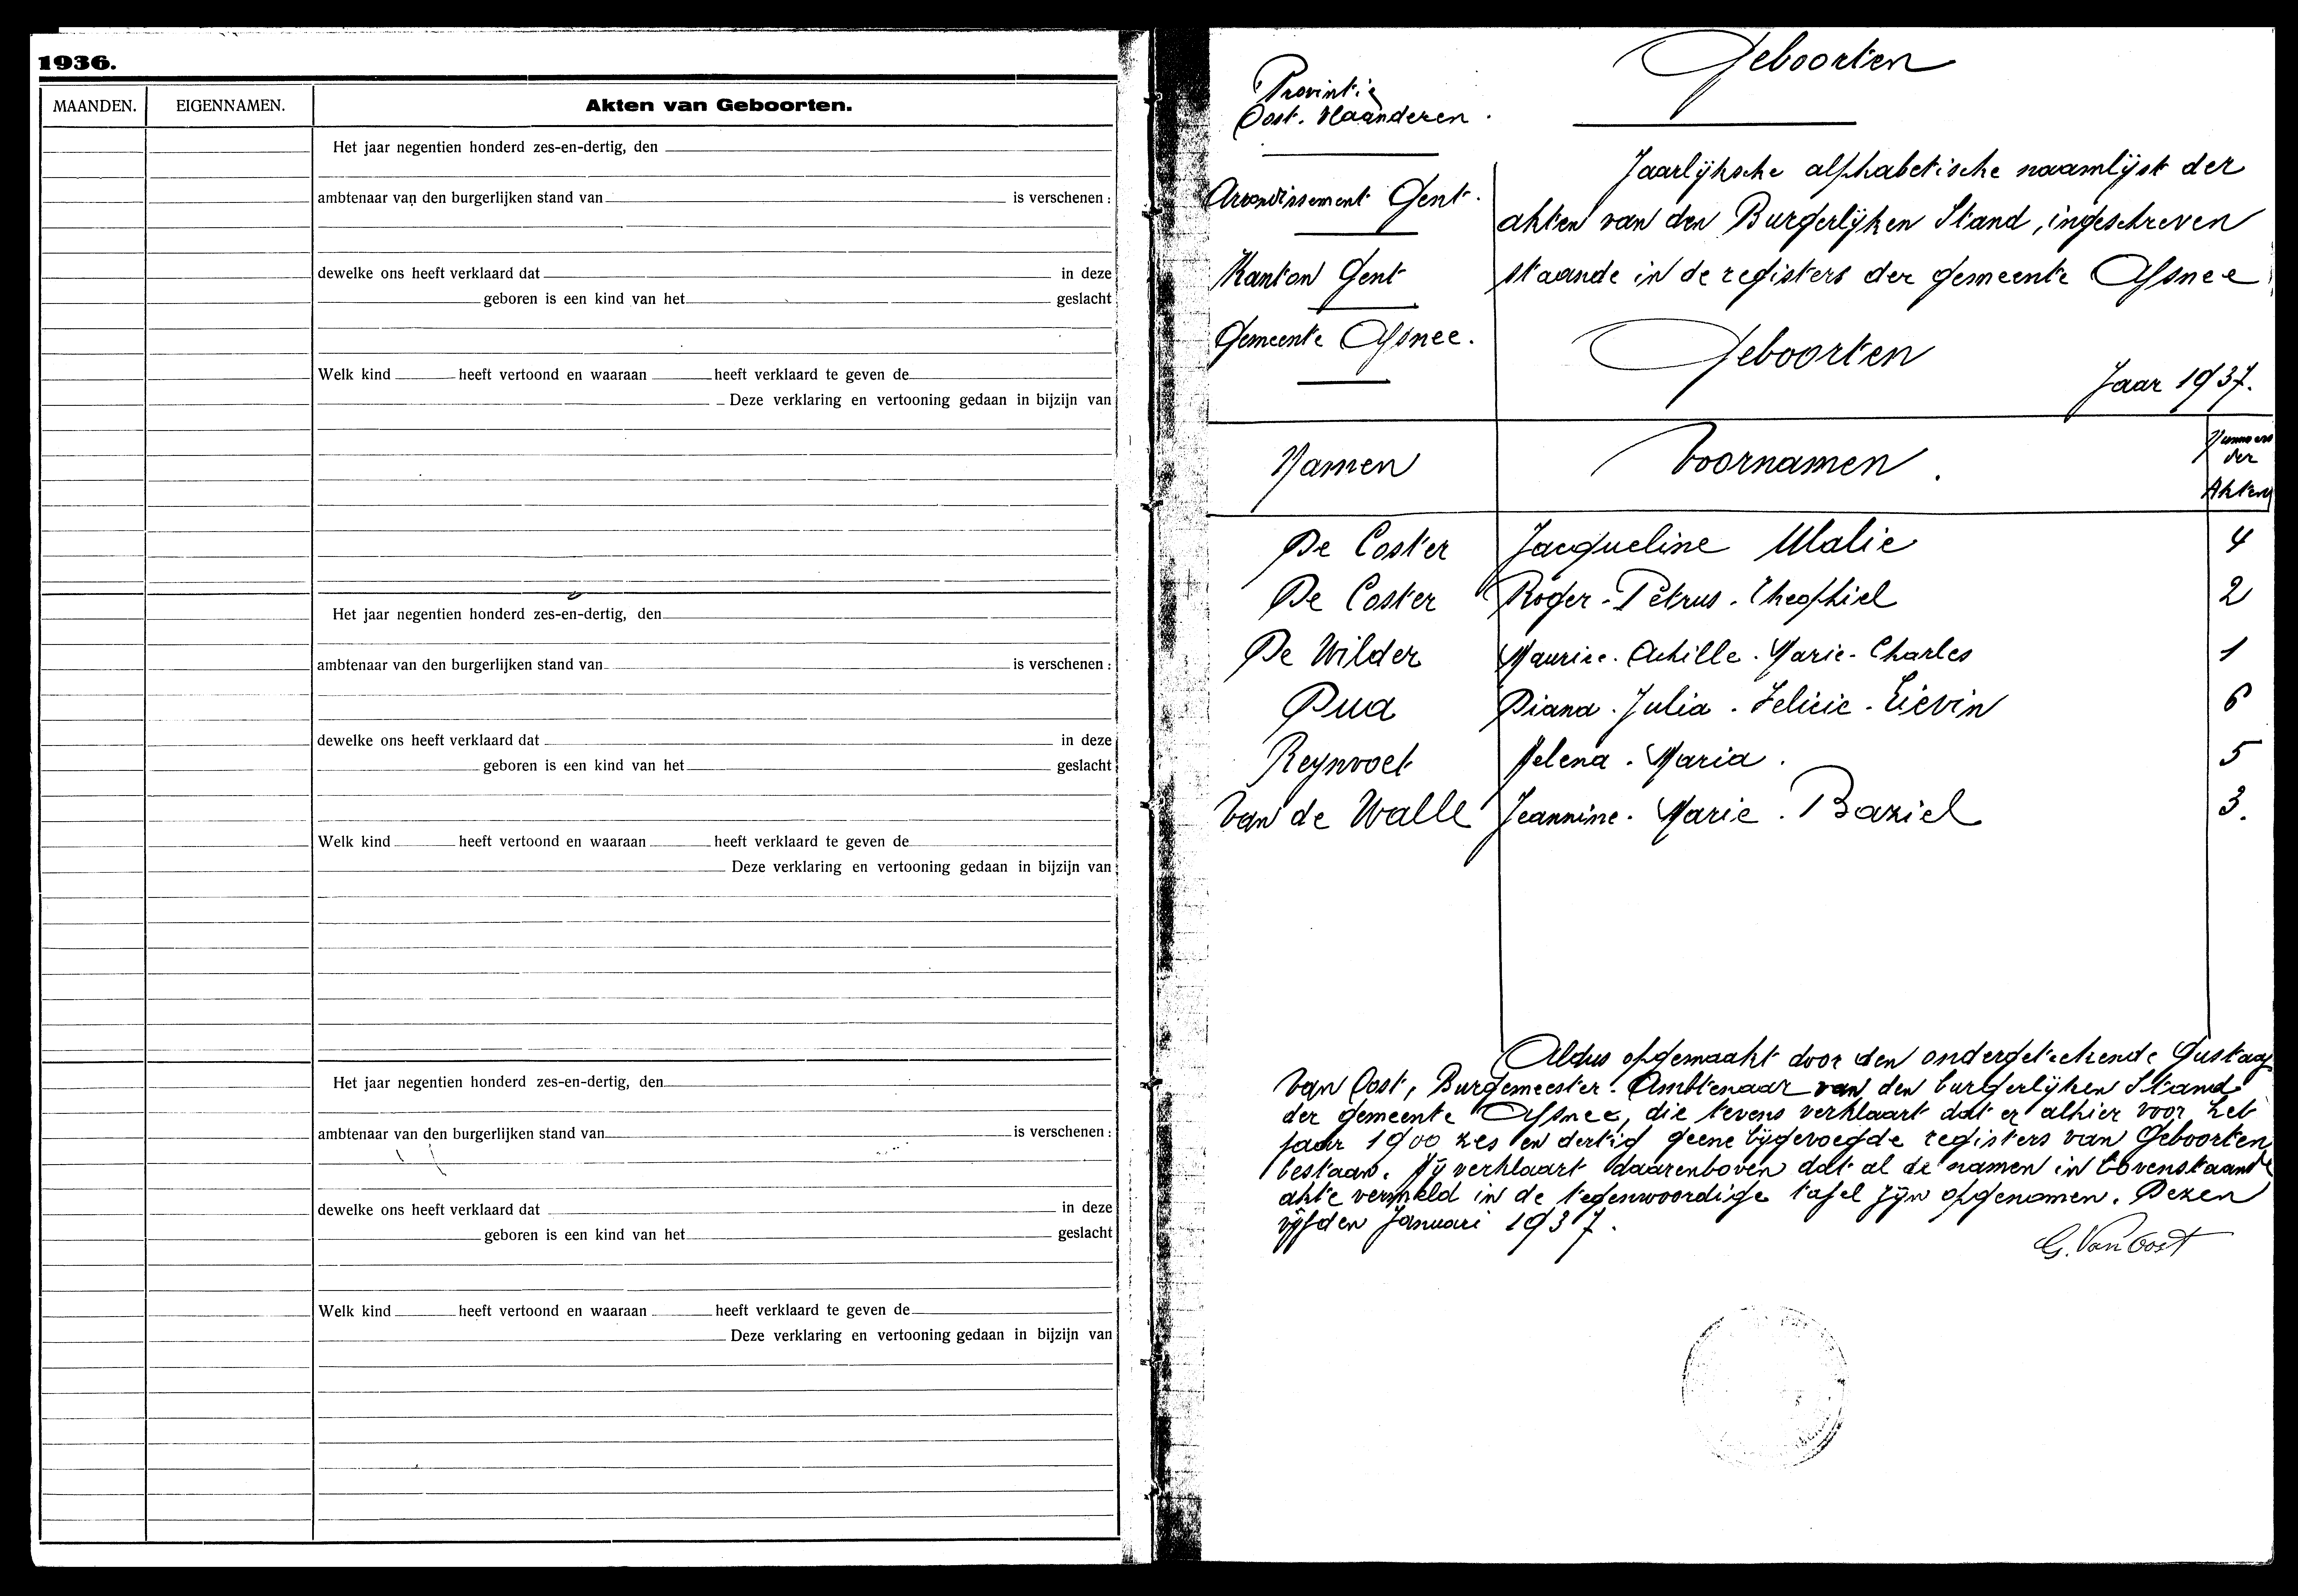 1936.
MAANDEN.
EIGENNAMEN.
Akten van Geboorten.
Het jaar negentien honderd zes-en-dertig, den
ambtenaar van den burgerlijken stand van is verschenen :
dewelke ons heeft verklaard dat in deze
geboren is een kind van het geslacht
Welk kind heeft vertoond en waaraan heeft verklaard te geven de
Deze verklaring en vertooning gedaan in bijzijn van
Het jaar negentien honderd zes-en-dertig, den
ambtenaar van den burgerlijken stand van is verschenen :
dewelke ons heeft verklaard dat in deze
geboren is een kind van het geslacht
Welk kind heeft vertoond en waaraan heeft verklaard te geven de
Deze verklaring en vertooning gedaan in bijzijn van
Het jaar negentien honderd zes-en-dertig, den
ambtenaar van den burgerlijken stand van is verschenen :
dewelke ons heeft verklaard dat in deze
geboren is een kind van het geslacht
Welk kind heeft vertoond en waaraan heeft verklaard te geven de
Deze verklaring en vertooning gedaan in bijzijn van
Geboorten
Provintie
Oost. Vlaanderen.
Arrondissement Gent.
Kanton Gent
Gemeente Afsnee.
Jaarlijksche alphabetische naamlijst der
akten van den Burgerlijken Stand, ingeschreven
staande in de registers der gemeente Afsnee
Geboorten
Jaar 1937.
Namen Voornamen. Nummers
der
Akten
De Coster Jacqueline Malie 4
De Coster Roger - Petrus - Theophiel 2
De Wilder Maurice - Achille - Marie - Charles 1
Dua Diana - Julia - Felicie - Lievin 6
Reynvoet Helena - Maria. 5
Van de Walle Jeannine - Marie - Baziel 3.
Aldus opgemaakt door den ondergeteekende Gustaaf
Van Oost, Burgemeester-Ambtenaar van den burgerlijken Stand
der gemeente Afsnee, die tevens verklaart dat er alhier voor het
jaar 1900 zes en dertig geene bijgevoegde registers van Geboorten
bestaan. Hij verklaart daarenboven dat al de namen in bovenstaande
akte vermeld in de tegenwoordige tafel zijn opgenomen. Dezen
vijfden Januari 1937.
G. Van Oost